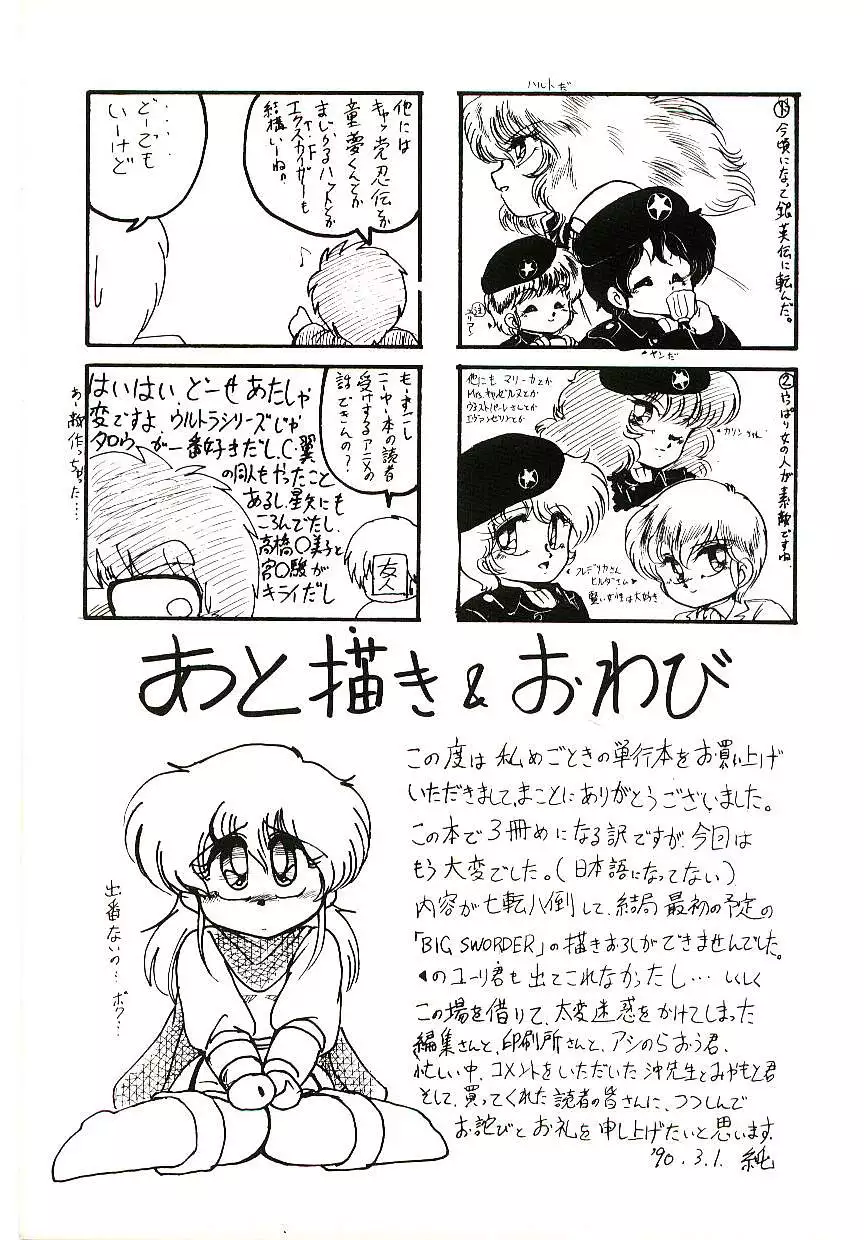 ハルトだ
①今頃になって銀英伝に転んだ。
注
ユリアン
ヤンだ
②やっぱり女の人が素敵ですね。
他にも マリーカとか
Mrs.キャゼルヌとか
ウエストパーレさんとか
エヴァンゼリンとか
カリンちゃん
フレデリカさん
ヒルダさん♥
賢い女性は大好き
他には
キャッ党忍伝とか
童夢くんとか
まじかるハットとか
T.F
エクスカイザーも
結構いーね。
♪
……
どーでも
いーけど
もーすこし
ニーヤー本の読者
受けするアニメの
話できんの?
友人
はいはい、どーせあたしゃ
変ですよ、ウルトラシリーズじゃ
タロウが一番好きだし、C.翼
の同人もやったこと
あるし、星矢にも
ころんでたし、
高橋〇美子と
宮〇駿が
キライだし
あー敵作っちゃった……
あと描き & おわび
この度は私めごときの単行本をお買い上げ
いただきまして、まことにありがとうございました。
この本で3冊めになる訳ですが、今回は
もう大変でした。(日本語になってない)
内容が七転八倒して、結局最初の予定の
「BIG SWORDER」の描きおろしができませんでした。
◀のユーリ君も出てこれなかったし… くしく
この場を借りて、大変迷惑をかけてしまった
編集さんと、印刷所さんと、アシのらおう君、
忙しい中、コメントをいただいた沖先生とみやもと君
そして、買ってくれた読者の皆さんに、つつしんで
お詫びとお礼を申し上げたいと思います。
'90.3.1. 純
出番ないの…
ボク…